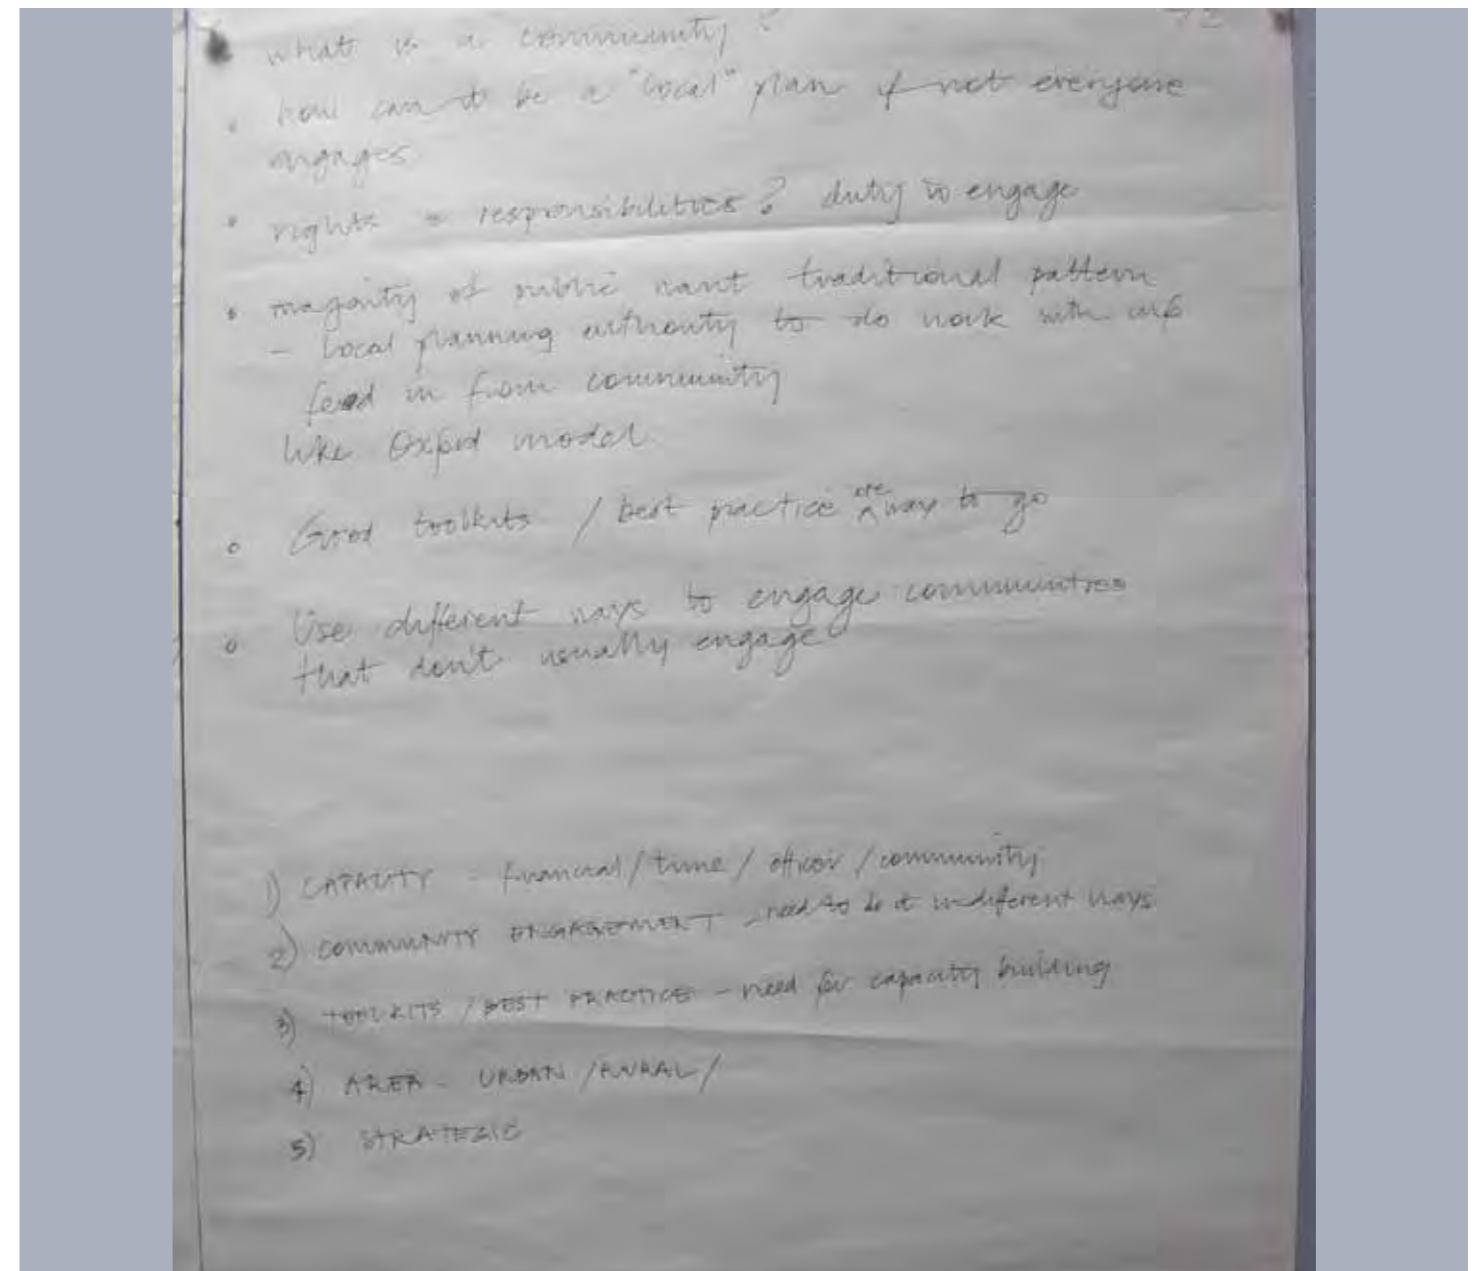 what is a community?
• how can it be a "local" plan if not everyone
engages
• rights = responsibilities? duty to engage
• majority of public want traditional pattern
- local planning authority to do work with info
feed in from community
like Oxford model
• Good toolkits / best practice are way to go
• Use different ways to engage communities
that don't usually engage
1) CAPACITY - financial / time / officer / community
2) COMMUNITY ENGAGEMENT - need to do it in different ways
3) TOOLKITS / BEST PRACTICE - need for capacity building
4) AREA - URBAN / RURAL /
5) STRATEGIC